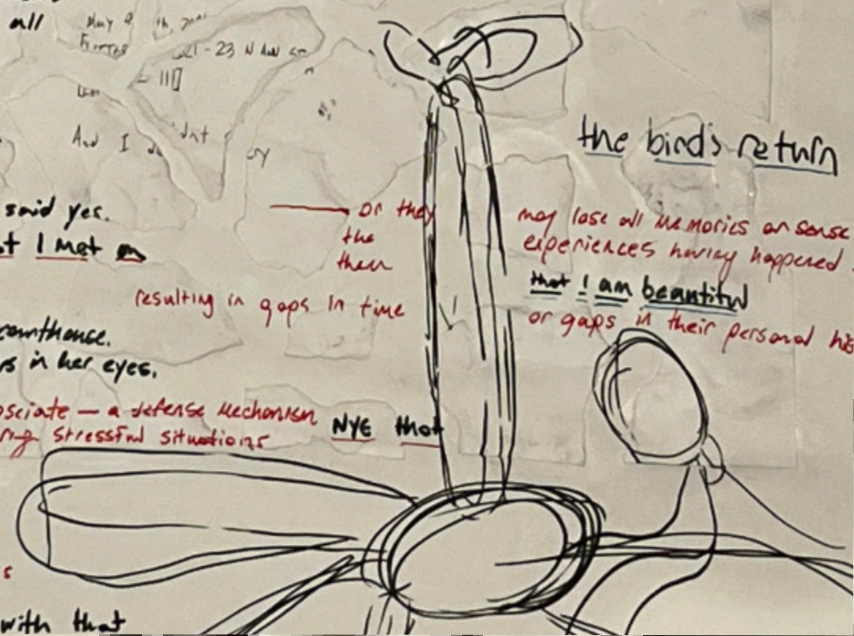 all
May 9 th, 20
- 23 N
And I
the bird's return
said yes.
or they
may lose all memories or sense
I met
the
experiences having happened
then
that I am beautiful
resulting in gaps in time
or gaps in their personal his
courthouse.
s in her eyes.
sociate — a defense mechanism
NYE that
ring stressful situations
s
with that